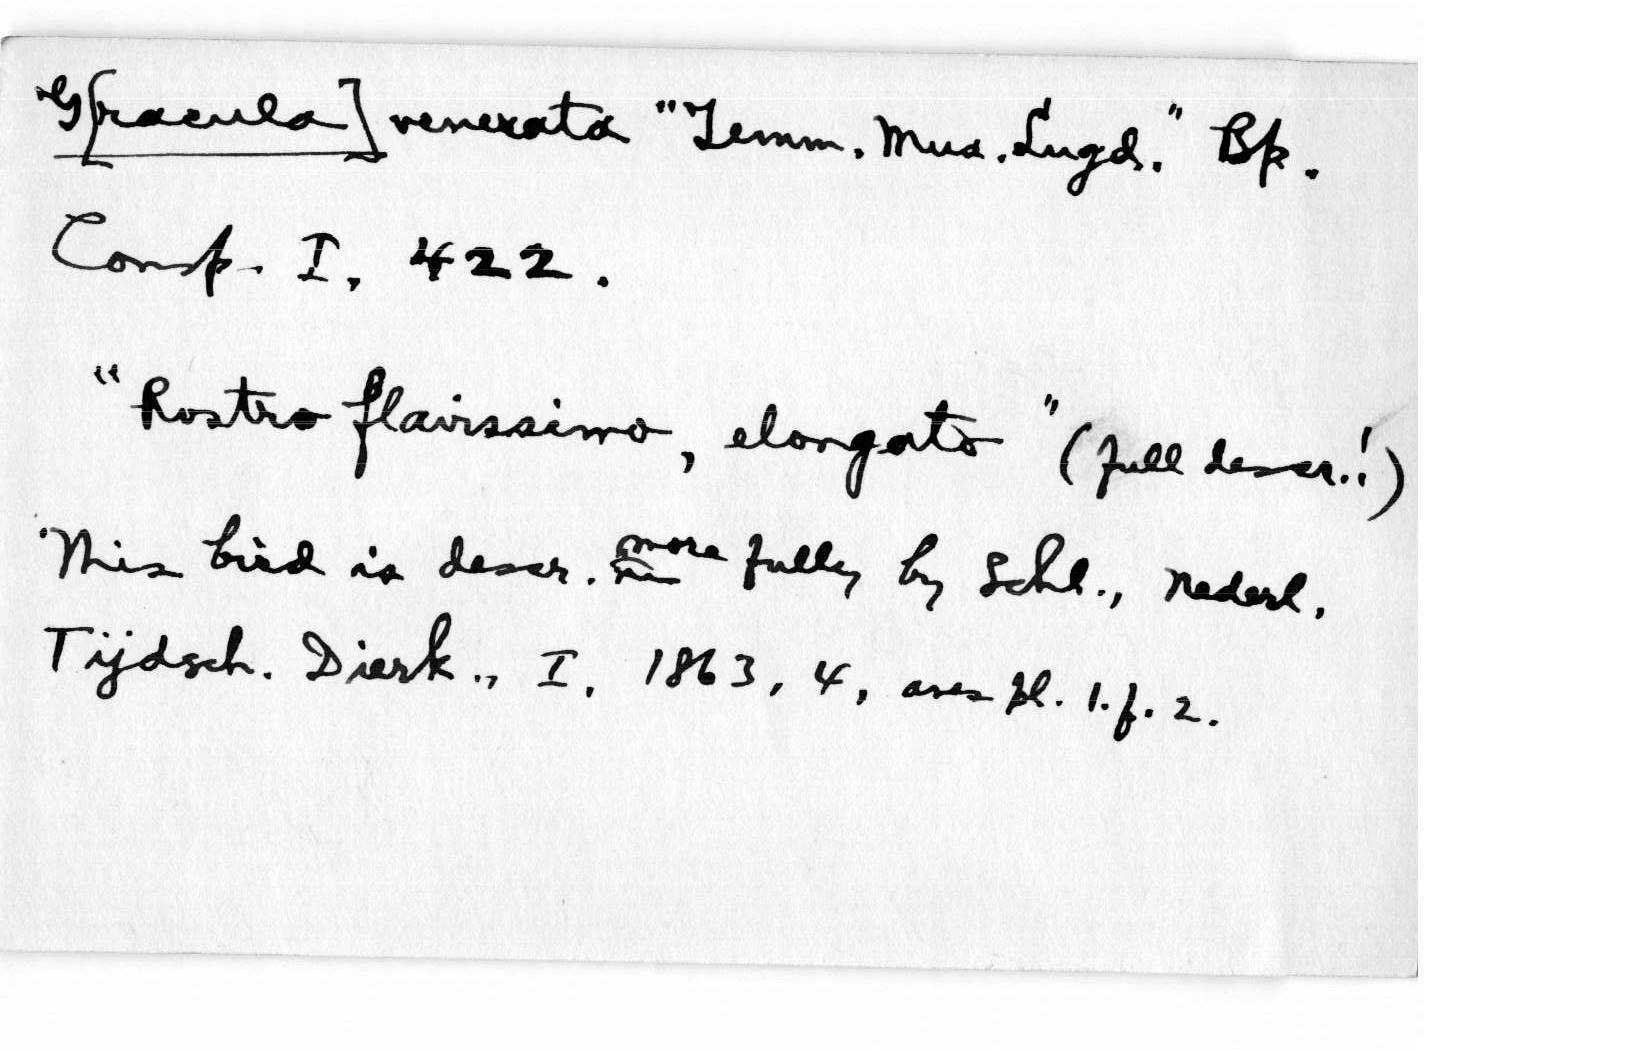 G[racula] venerata "Temm. Mus. Lugd." Bp.
Consp. I, 422.
"Rostro flavissimo, elongato" (full descr.!)
This bird is descr. more fully by Schl., Nederl.
Tijdsch. Dierk., I, 1863, 4, aves pl. 1. f. 2.